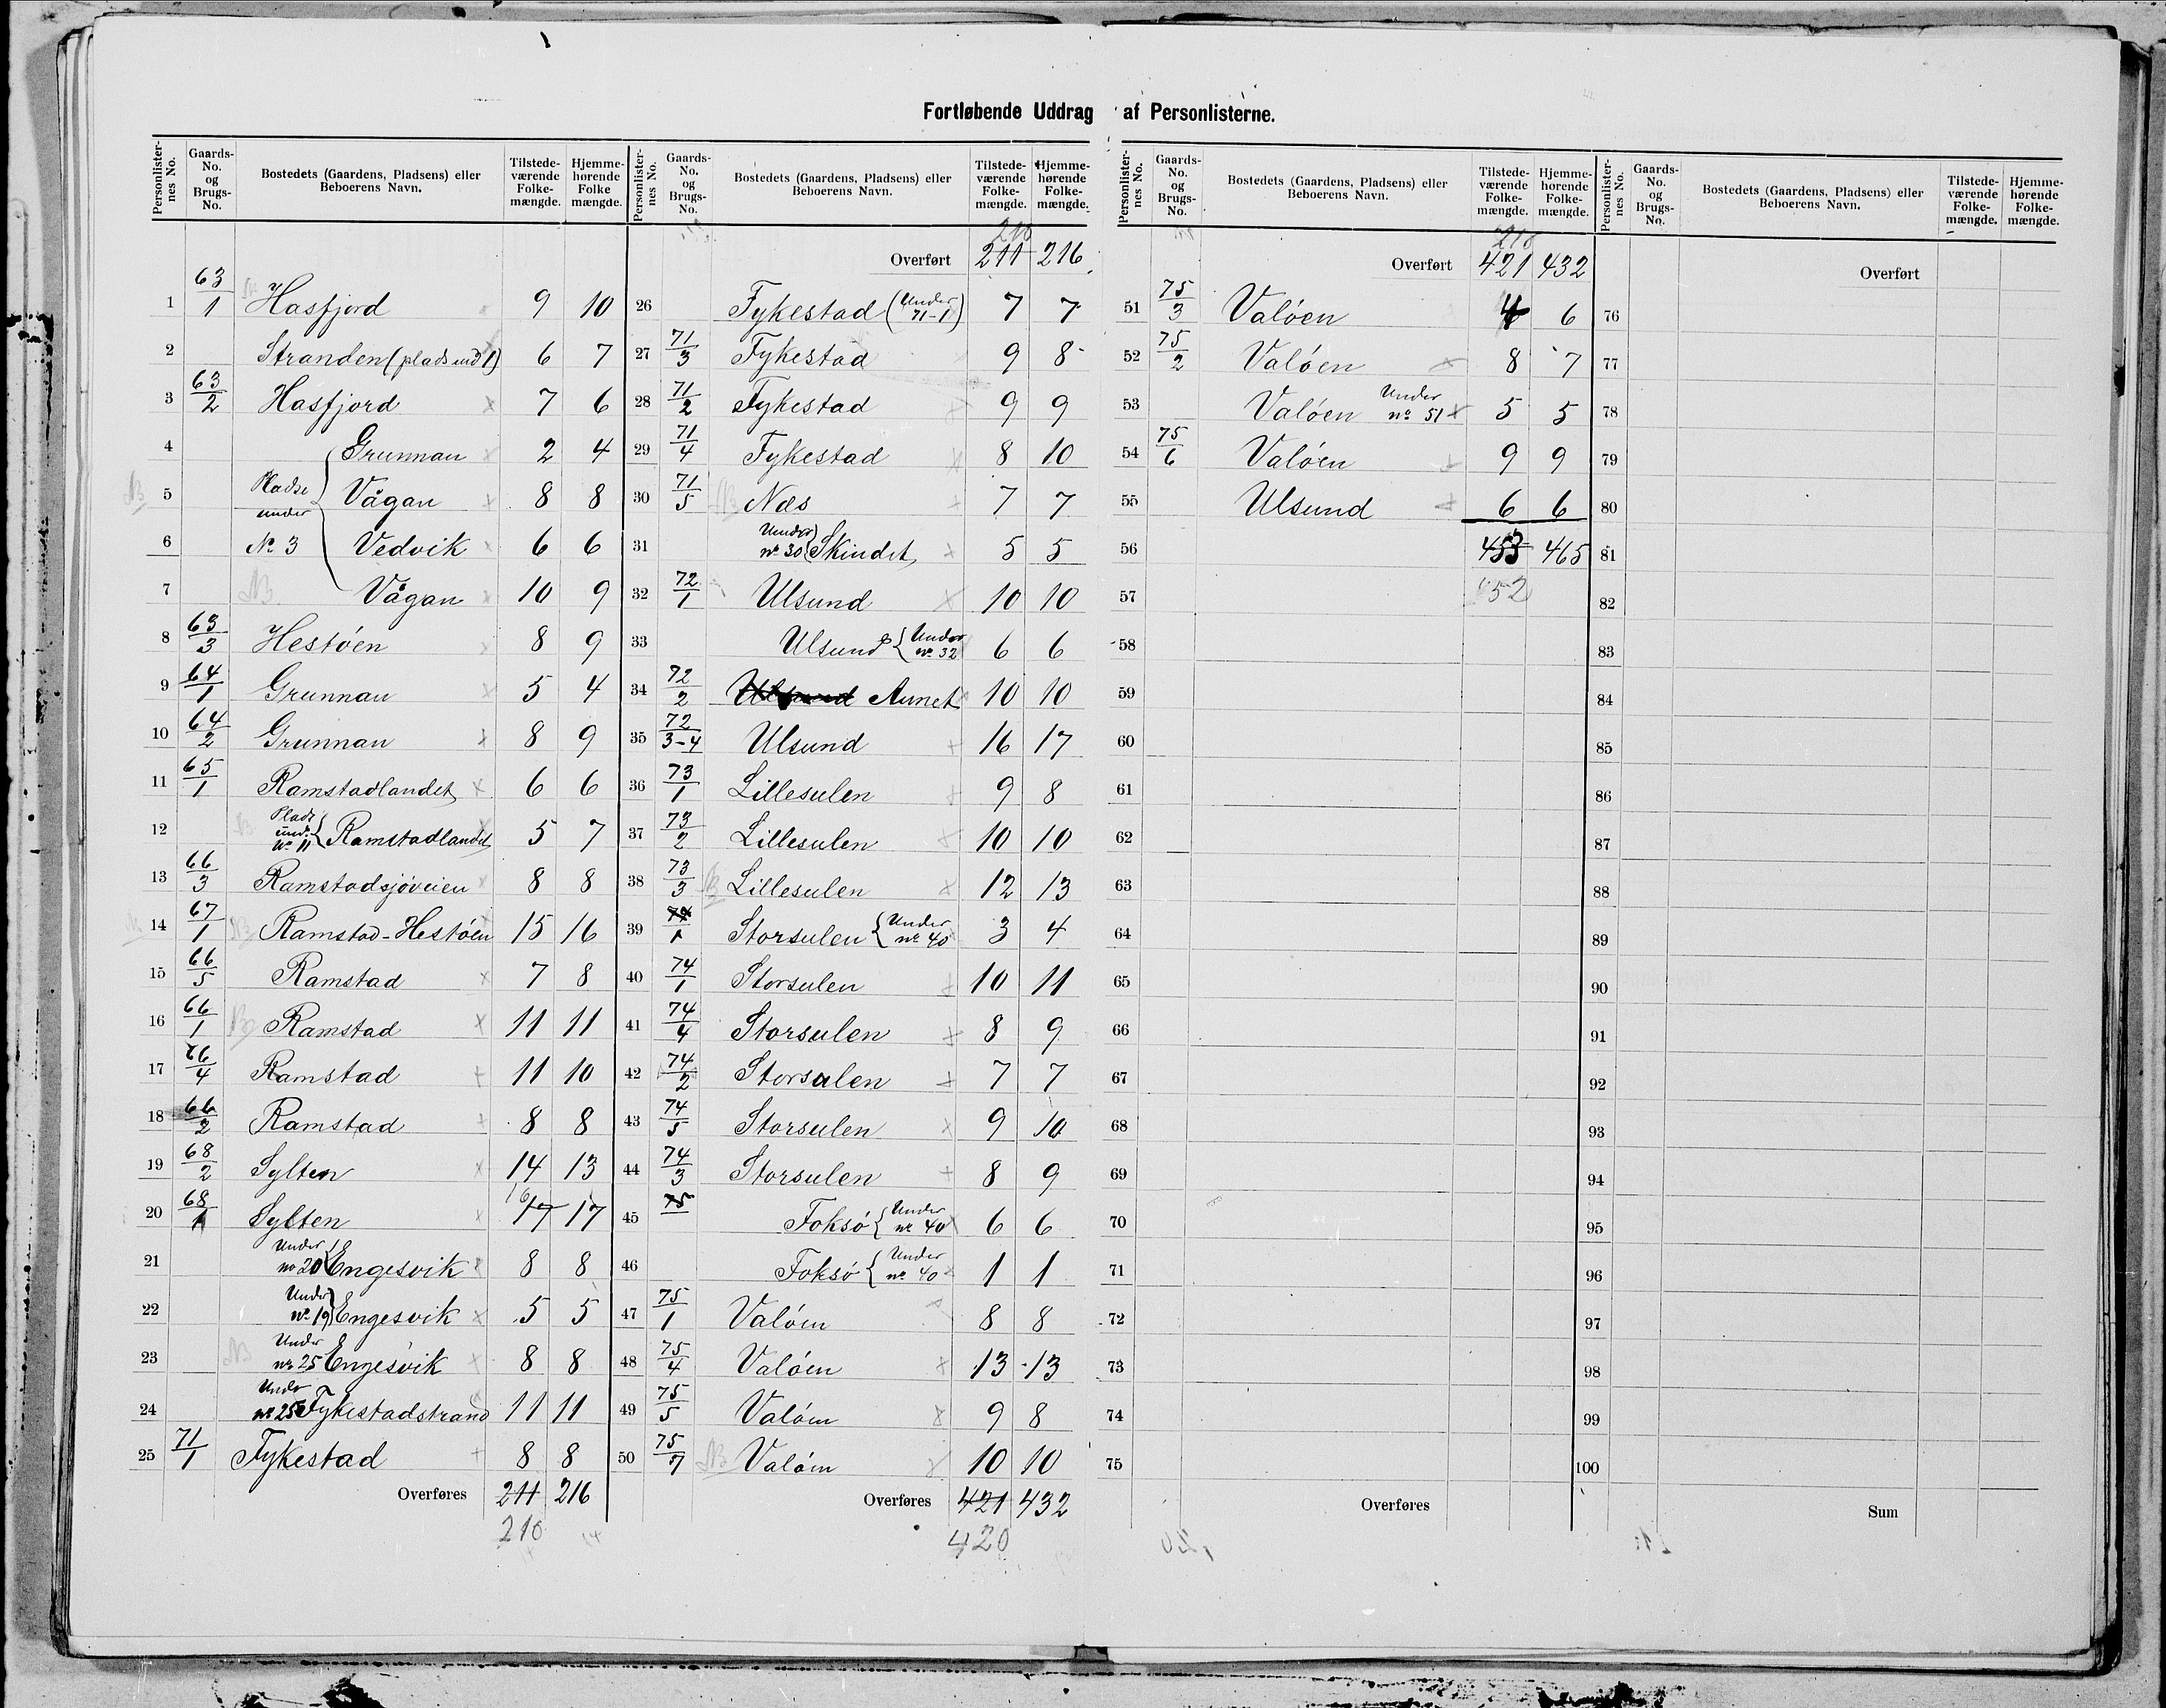 Fortløbende Uddrag af Personlisterne.
Personlisternes No. Gaards-No. og Brugs-No. Bostedets (Gaardens, Pladsens) eller Beboerens Navn. Tilstedeværende Folkemængde. Hjemmehørende Folke mængde.
1 63/1 Hasfjord 9 10
2 Stranden (plads und 1) 6 7
3 63/2 Hasfjord 7 6
4 Grunnan 2 4
5 Pladse under Vågan 8 8
6 No 3 Vedvik 6 6
7 Vågan 10 9
8 63/3 Hestöen 8 9
9 64/1 Grunnan 5 4
10 64/2 Grunnan 8 9
11 65/1 Ramstadlandet 6 6
12 Plads und. No 11 Ramstadlandet 5 7
13 66/3 Ramstadsjöveien 8 8
14 67/1 Ramstad-Hestöen 15 16
15 66/5 Ramstad 7 8
16 66/1 Ramstad 11 11
17 66/4 Ramstad 11 10
18 66/2 Ramstad 8 8
19 68/2 Sylten 14 13
20 68/1 Sylten 16 17 17
21 Under no 20 Engesvik 8 8
22 Under No 19 Engesvik 5 5
23 Under nr 25 Engesvik 8 8
24 Under no 25 Fykestadstrand 11 11
25 71/1 Fykestad 8 8
Overføres 211 216
210
Personlisternes No. Gaards-No. og Brugs-No. Bostedets (Gaardens, Pladsens) eller Beboerens Navn. Tilstedeværende Folkemængde. Hjemmehørende Folkemængde.
210
Overført 211 216
26 Fykestad (Under 71-1) 7 7
27 71/3 Fykestad 9 8
28 71/2 Fykestad 9 9
29 71/4 Fykestad 8 10
30 71/5 Næs 7 7
31 Under No 30 Skindet 5 5
32 72/1 Ulsund 10 10
33 Ulsund Under No 32 6 6
34 72/2 Ulsund Aunet 10 10
35 72/3-4 Ulsund 16 17
36 73/1 Lillesulen 9 8
37 73/2 Lillesulen 10 10
38 73/3 Lillesulen 12 13
39 74/1 Storsulen Under no 40 3 4
40 74/1 Storsulen 10 11
41 74/4 Storsulen 8 9
42 74/2 Storsulen 7 7
43 74/5 Storsulen 9 10
44 74/3 Storsulen 8 9
45 75 Foksö Under nr 40 6 6
46 Foksö Under no 40 1 1
47 75/1 Valöen 8 8
48 75/4 Valöen 13 13
49 75/5 Valöen 9 8
50 75/7 Valöen 10 10
Overføres 421 432
420
Personlisternes No. Gaards-No. og Brugs-No. Bostedets (Gaardens, Pladsens) eller Beboerens Navn. Tilstedeværende Folkemængde. Hjemmehørende Folkemængde.
Overført 421 432
51 75/3 Valöen 4 6
52 75/2 Valöen 8 7
53 Valöen Under no 51 5 5
54 75/6 Valöen 9 9
55 Ulsund 6 6
56 453 465
57 452
58
59
60
61
62
63
64
65
66
67
68
69
70
71
72
73
74
75
Overføres
Personlisternes No. Gaards-No. og Brugs-No. Bostedets (Gaardens, Pladsens) eller Beboerens Navn. Tilstedeværende Folkemængde. Hjemmehørende Folkemængde.
Overført
76
77
78
79
80
81
82
83
84
85
86
87
88
89
90
91
92
93
94
95
96
97
98
99
100
Sum